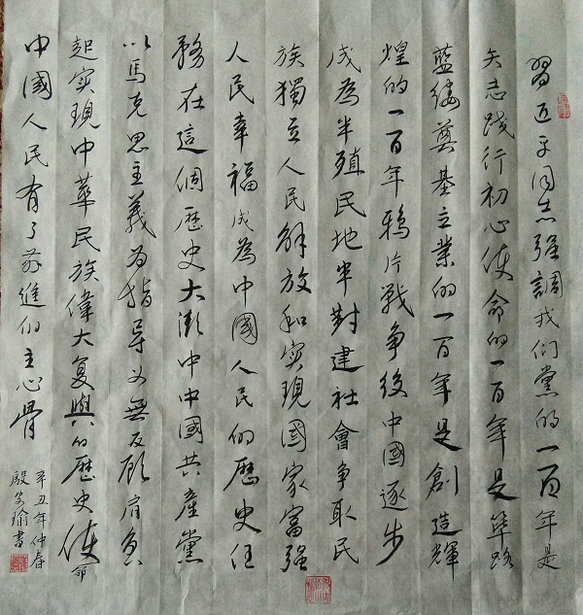 習近平同志强調我们黨的一百年是
矢志践行初心使命的一百年是筚路
藍缕奠基立業的一百年是創造輝
煌的一百年鸦片戰争後中國逐步
成為半殖民地半封建社會争取民
族獨立人民解放和实現國家富强
人民幸福成為中國人民的歷史任
務在這個歷史大潮中中國共產黨
以馬克思主義為指导义無反顾肩負
起实現中華民族偉大复興的歷史使命
中國人民有了前進的主心骨
辛丑年仲春
殷笑瑜書